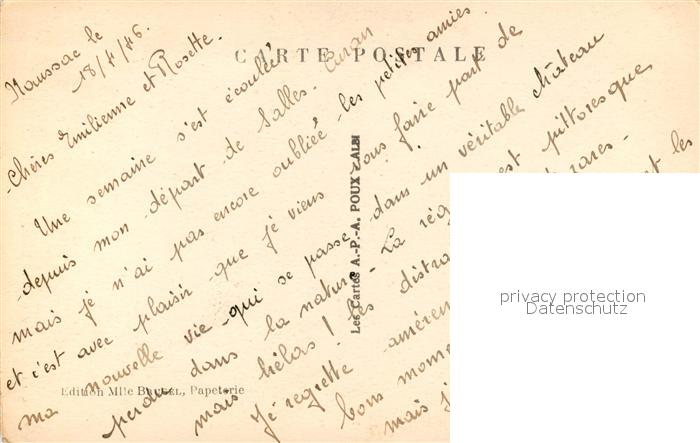 CARTE POSTALE
Naussac le
18/4/46.
Chères Emilienne et Rosette.
Une semaine s'est écoulée
depuis mon départ de Salles-Curan
mais je n'ai pas encore oubliée les petites amies
et c'est avec plaisir que je viens vous faire part de
ma nouvelle vie qui se passe dans un véritable château
perdu dans la nature. La rég est pittoresque
mais hélas! les distra rares.
Je regrette amèrem t les
bons mome
mais j
Les Cartes A.-P.-A. POUX - ALBI
Edition Mlle , Papeterie
privacy protection
Datenschutz